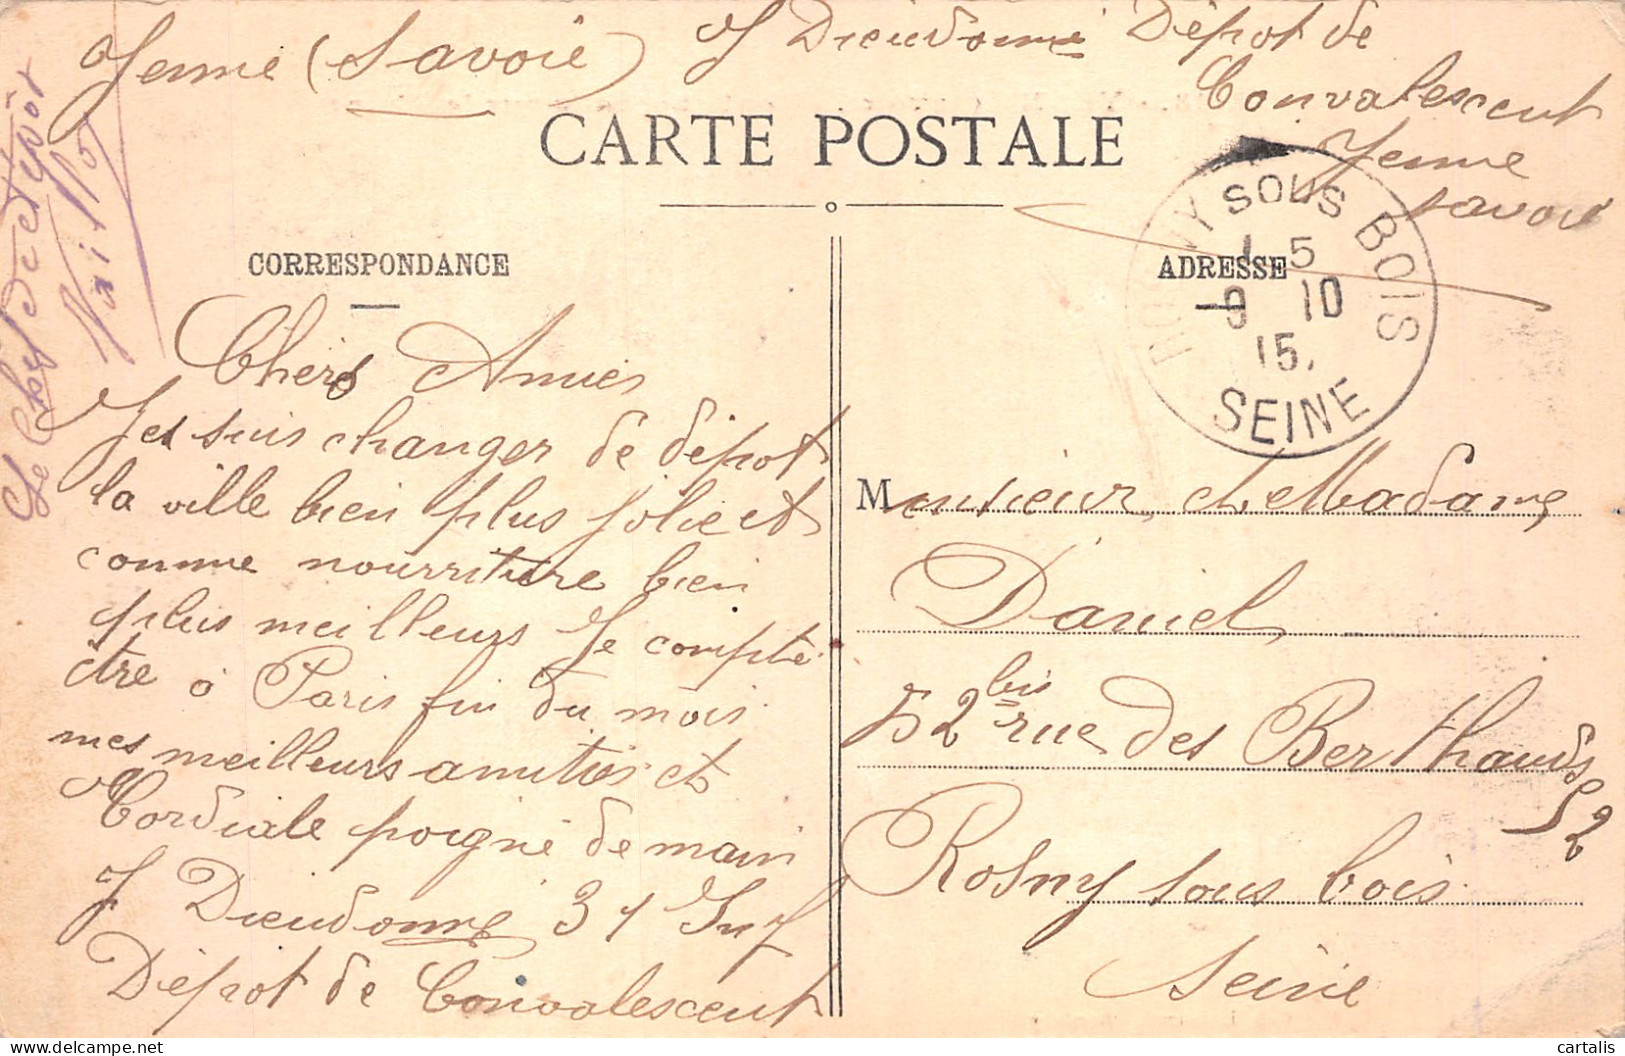 Yenne (Savoie)
J Dieudonné Dépot de
Convalescent
Yenne
Savoie
Le Chef de Dépôt
CARTE POSTALE
CORRESPONDANCE
ADRESSE
ROSNY SOUS BOIS
1 5
9 10
15.
SEINE
Chers Amies
Je suis changer de dépot
la ville bien plus jolie et
comme nourriture bien
plus meilleurs Je compte
être a Paris fin du mois
mes meilleurs amitiés et
Cordiale poigné de main
J Dieudonné 31 Inf
Dépot de Convalescent
Monsieur et Madame
Daniel
52 bis rue des Berthauds
52
Rosny sous bois
Seine
cartalis
delcampe.net